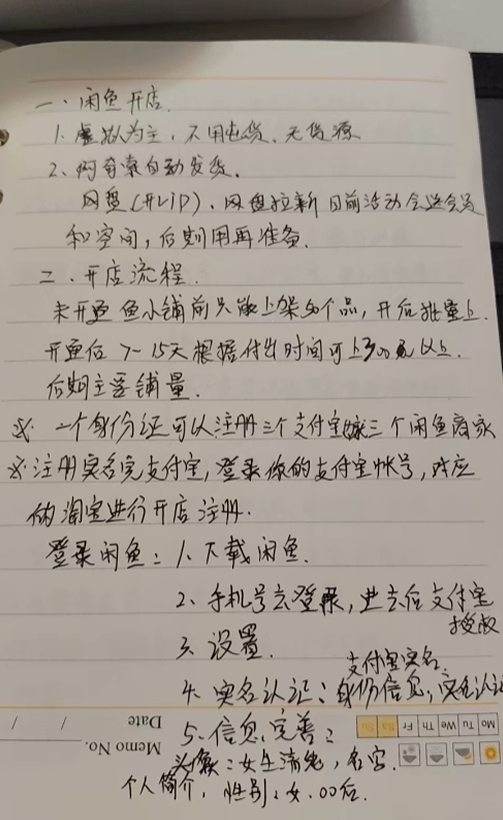 一、闲鱼开店.
1. 虚拟为主，不用屯货、无货源
2、阿奇索自动发货.
网盘(开VIP)、网盘拉新 目前活动会送会员
和空间，后期用再准备.
二、开店流程.
未开通鱼小铺前只能上架50个品，开后批量上.
开通后 7-15天根据付出时间可上300元以上.
后期主要铺量.
※ 一个身份证可以注册三个支付宝 三个闲鱼商家
※ 注册实名完支付宝，登录你的支付宝帐号，对应
的淘宝进行开店注册.
登录闲鱼：1、下载闲鱼.
2、手机号去登录，进去后支付宝
授权
3、设置.
支付宝实名.
4、实名认证：身份信息，实名认证
5、信息完善：
头像：女生清纯，名字.
个人简介，性别：女.00后.
Memo No.
Date / /
Mo Tu We Th Fr Sa Su